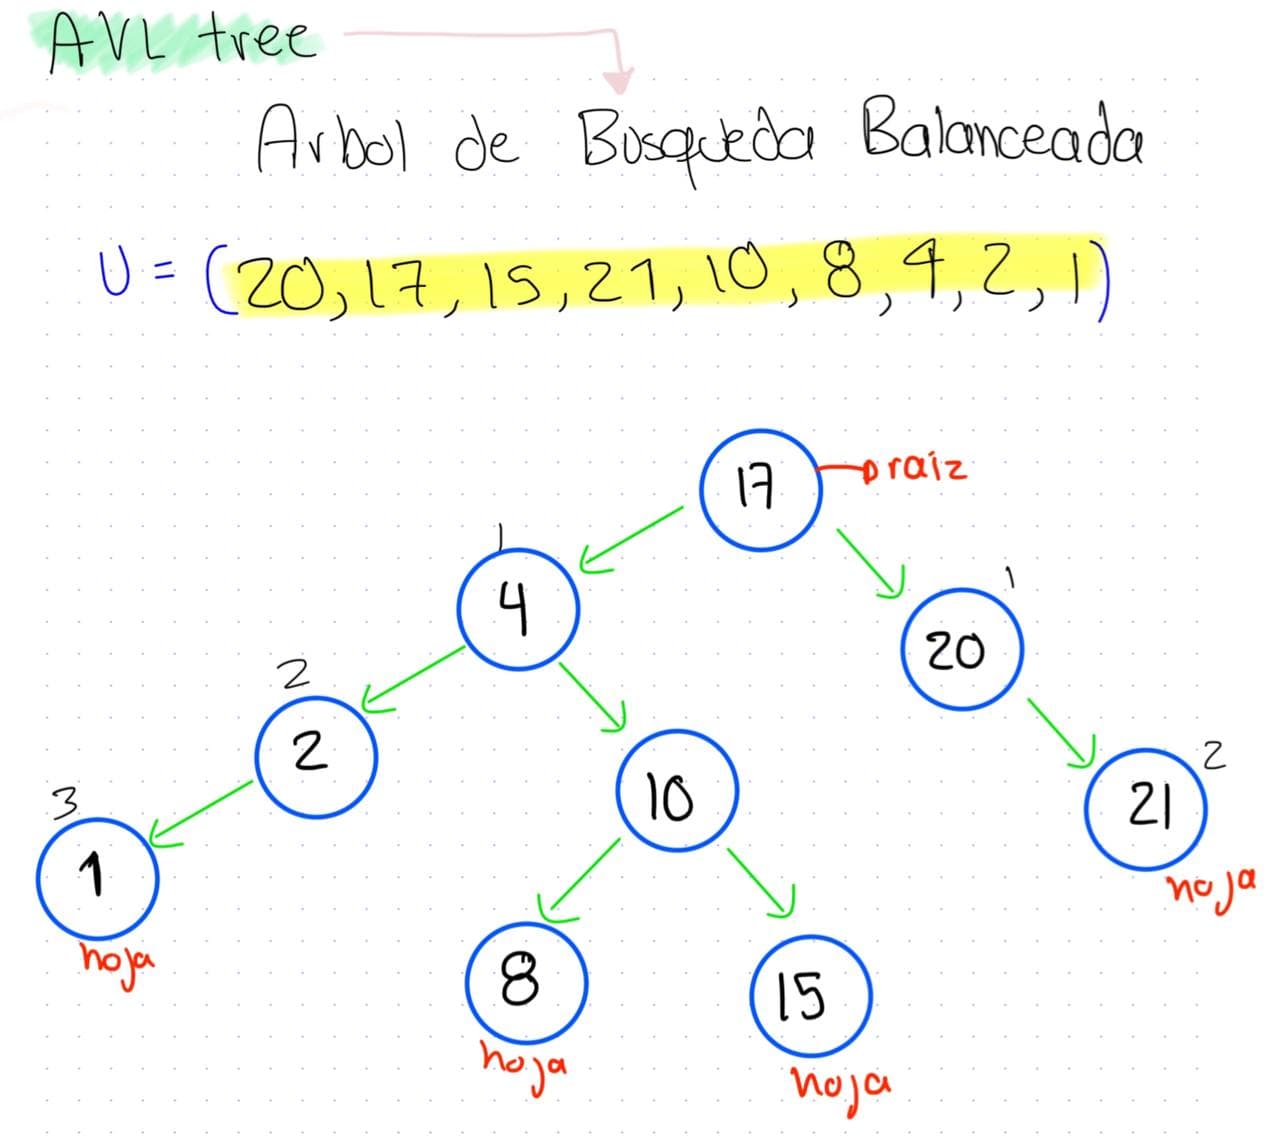 AVL tree
Arbol de Busqueda Balanceada
U = (20, 17, 15, 21, 10, 8, 4, 2, 1)
17 raíz
1
4
1
20
2
2
10
2
21
hoja
3
1
hoja
8
hoja
15
hoja